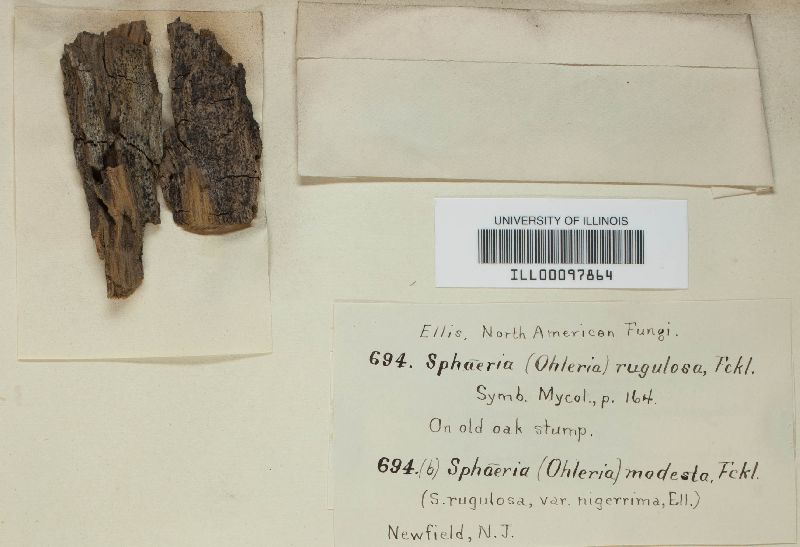 UNIVERSITY OF ILLINOIS
ILL00097864
Ellis, North American Fungi.
694. Sphaeria (Ohleria) rugulosa, Fckl.
Symb. Mycol., p. 164.
On old oak stump.
694.(b) Sphaeria (Ohleria) modesta, Fckl.
(S. rugulosa, var. nigerrima, Ell.)
Newfield, N.J.